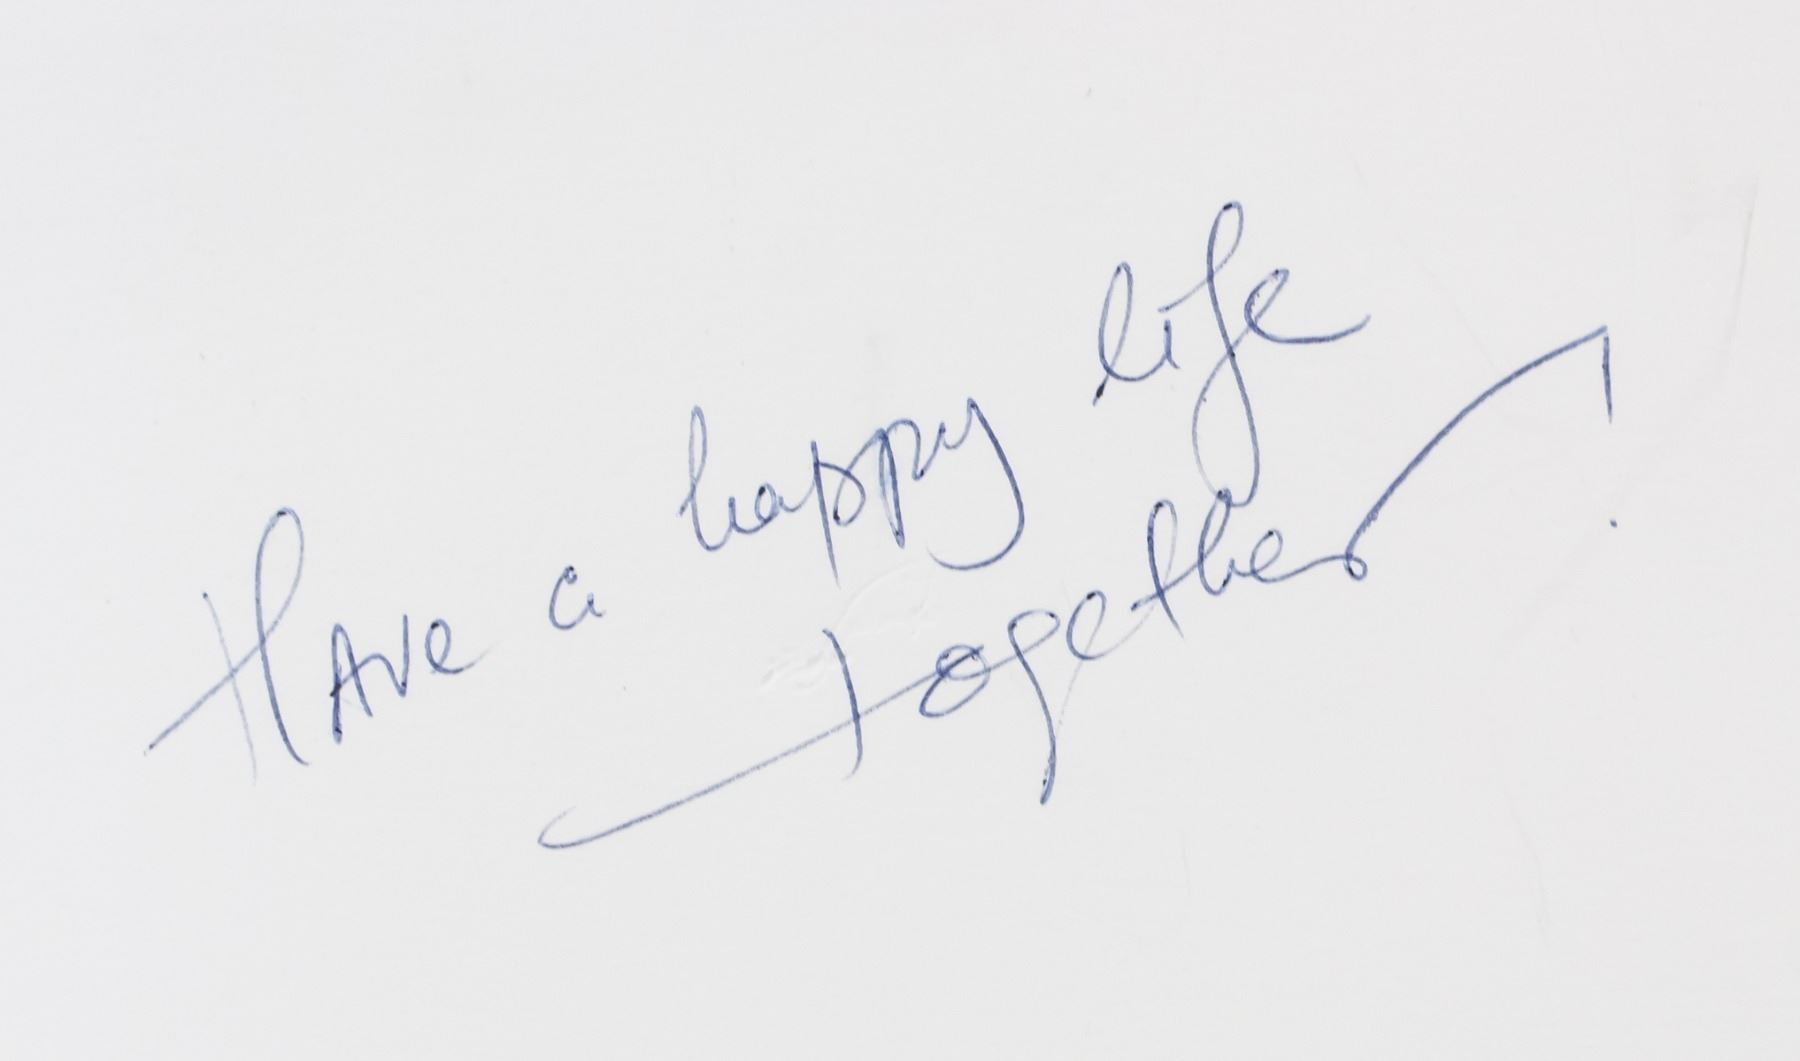 HAve a happy life
together!